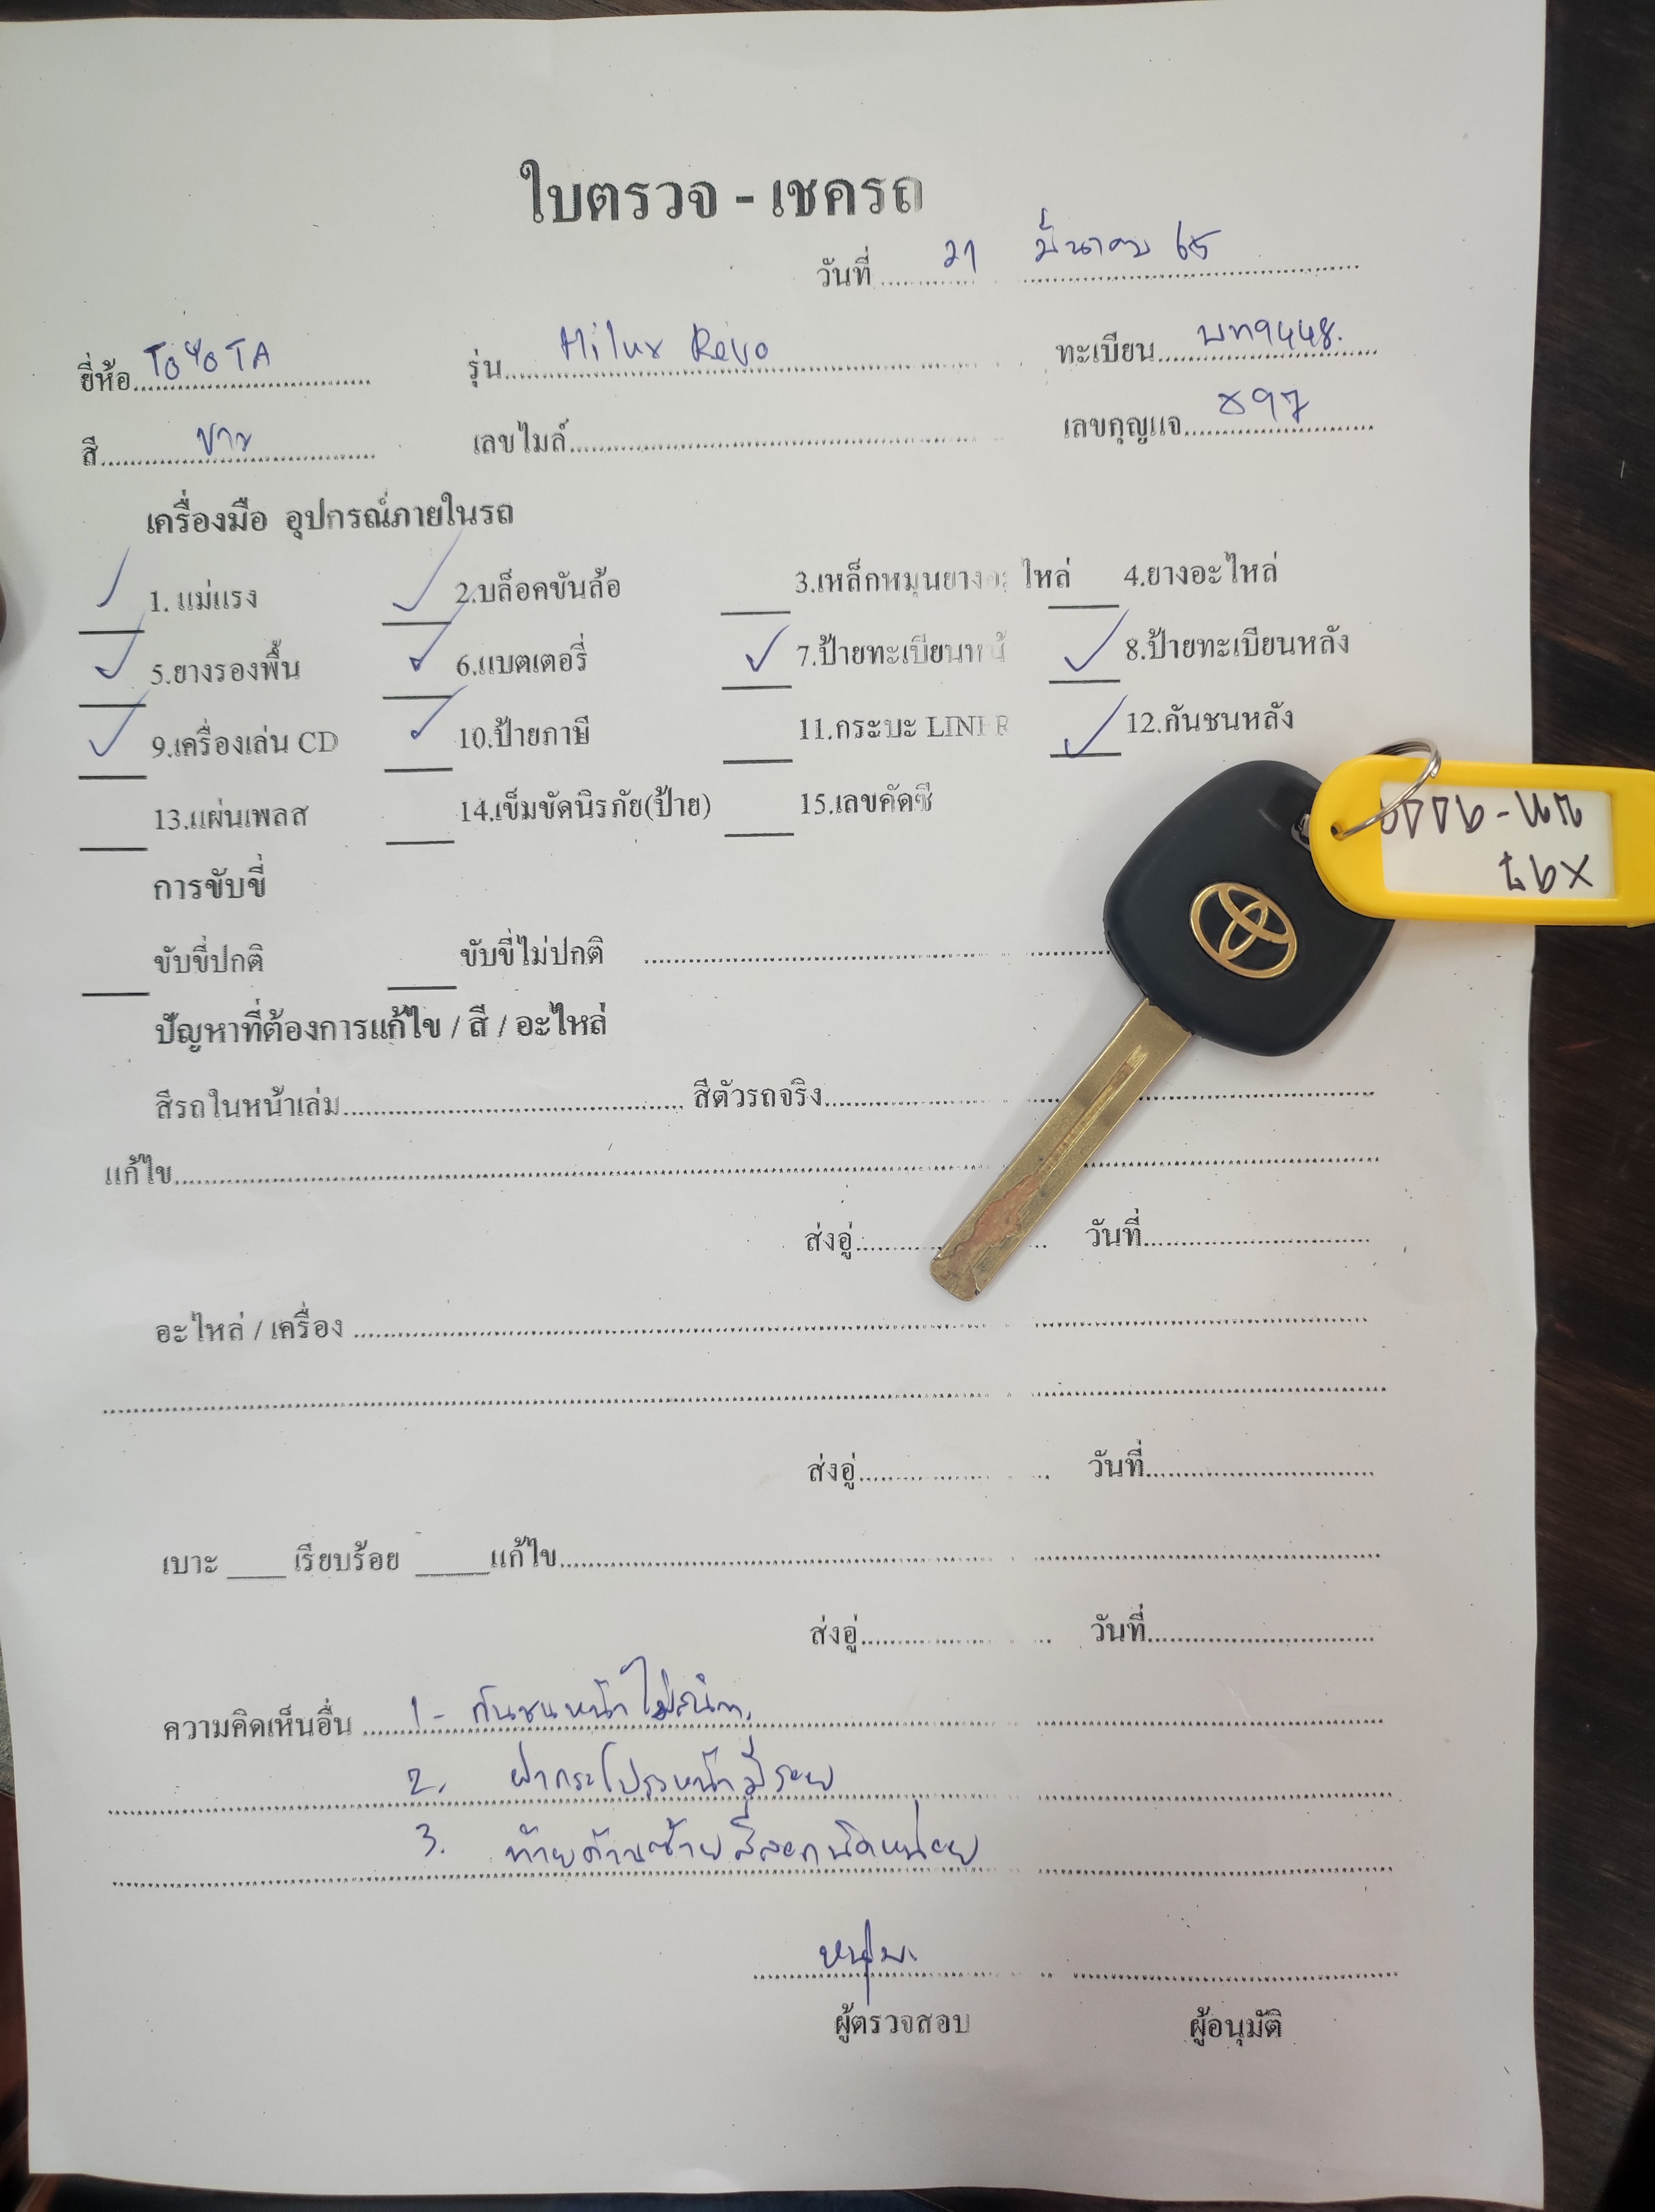 ใบตรวจ - เชครถ
วันที่ 21 มีนาคม 65
ยี่ห้อ TOYOTA รุ่น Hilux Revo ทะเบียน บท9448.
สี ขาว เลขไมล์ เลขกุญแจ X97
เครื่องมือ อุปกรณ์ภายในรถ
✓ 1. แม่แรง ✓ 2.บล็อคขันล้อ 3.เหล็กหมุนยางอะไหล่ 4.ยางอะไหล่
✓ 5.ยางรองพื้น ✓ 6.แบตเตอรี่ ✓ 7.ป้ายทะเบียนหน้า ✓ 8.ป้ายทะเบียนหลัง
✓ 9.เครื่องเล่น CD ✓ 10.ป้ายภาษี 11.กระบะ LINER ✓ 12.กันชนหลัง
13.แผ่นเพลส 14.เข็มขัดนิรภัย(ป้าย) 15.เลขคัดซี
การขับขี่
ขับขี่ปกติ ขับขี่ไม่ปกติ
ปัญหาที่ต้องการแก้ไข / สี / อะไหล่
สีรถในหน้าเล่ม สีตัวรถจริง
แก้ไข
ส่งอู่ วันที่
อะไหล่ / เครื่อง
ส่งอู่ วันที่
เบาะ เรียบร้อย แก้ไข
ส่งอู่ วันที่
ความคิดเห็นอื่น 1- กันชนหน้าไม่สนิท.
2. ฝากระโปรงหน้ามีรอย
3. ท้ายด้านซ้ายสีลอกนิดหน่อย
หนุ่ม.
ผู้ตรวจสอบ ผู้อนุมัติ
X97